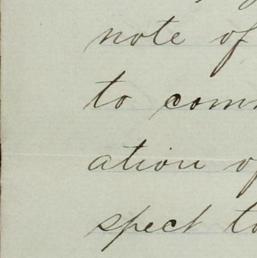 note of
to com
ation of
spect to